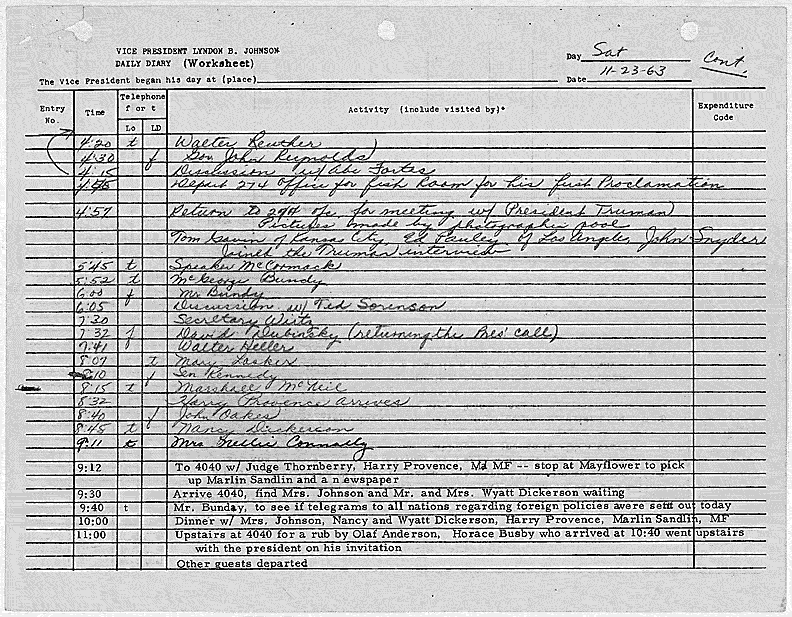 VICE PRESIDENT LYNDON B. JOHNSON
DAILY DIARY (Worksheet)
Day Sat Cont.
The Vice President began his day at (place) Date 11-23-63
Entry No. Time Telephone f or t Lo LD Activity (include visited by)* Expenditure Code
4:20 t Walter Reuther
4:30 f Gov John Reynolds
4:15 Discussion w/ Abe Fortas
Depart 274 office for Fish Room for his first Proclamation
4:57 Return to 274 ofc for meeting w/ President Truman
Pictures made by photographic pool
Tom Gavin of Kansas City, Ed Pauley of Los Angeles, John Snyder
joined the Truman interview
5:45 t Speaker McCormack
5:52 t McGeorge Bundy
6:00 f Mr. Bundy
6:05 Discussion w/ Ted Sorenson
7:30 Secretary Wirtz
7:32 f David Dubinsky (returning the Pres' call)
7:41 Walter Heller
8:07 t Mary Lasker
8:10 f Sen Kennedy
8:15 t Marshall McNeil
8:32 Harry Provence arrives
8:40 f John Oakes
8:45 t Nancy Dickerson
9:11 t Mrs Nellie Connally
9:12 To 4040 w/ Judge Thornberry, Harry Provence, MF -- stop at Mayflower to pick
up Marlin Sandlin and a n ewspaper
9:30 Arrive 4040, find Mrs. Johnson and Mr. and Mrs. Wyatt Dickerson waiting
9:40 t Mr. Bunday, to see if telegrams to all nations regarding foreign policies were sent out today
10:00 Dinner w/ Mrs. Johnson, Nancy and Wyatt Dickerson, Harry Provence, Marlin Sandlin, MF
11:00 Upstairs at 4040 for a rub by Olaf Anderson, Horace Busby who arrived at 10:40 went upstairs
with the president on his invitation
Other guests departed